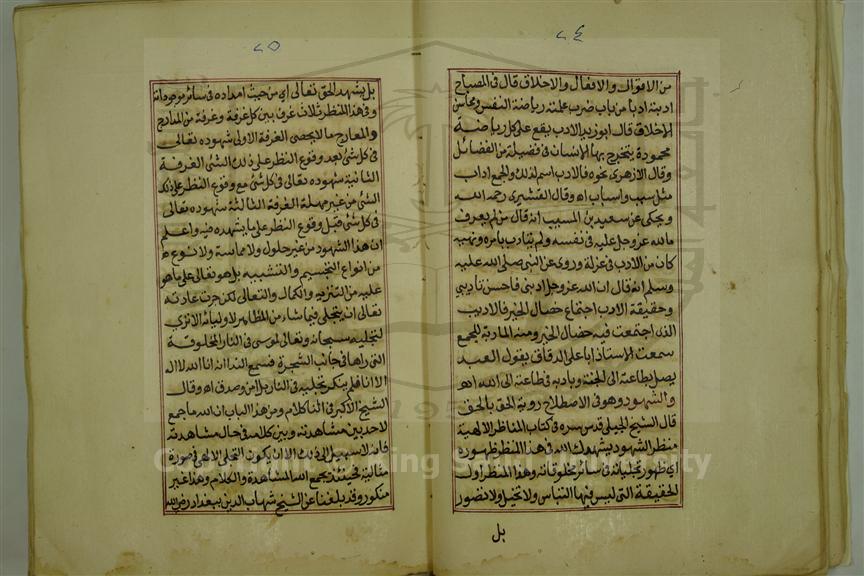 ٨٤
من الاقوال والافعال والاخلاق قال في المصباح
ادبته ادبا من باب ضرب علمته رياضة النفس ومحاسن
الاخلاق قال ابو زيد الادب يقع على كل رياضة
محمودة يتخرج بها الانسان في فضيلة من الفضائل
وقال الازهري نحوه فالادب اسم لذلك والجمع اداب
مثل سبب واسباب اه وقال القشيري رحمه الله
ويحكى عن سعيد بن المسيب انه قال من لم يعرف
ما لله عز وجل عليه في نفسه ولم يتادب بامره ونهيه
كان من الادب في عزلة وروى عن النبي صلى الله عليه
وسلم انه قال ان الله عز وجل ادبني فاحسن تاديبي
وحقيقة الادب اجتماع خصال الخير فالاديب
الذي اجتمعت فيه خصال الخير ومنه المادبة للجمع
سمعت الاستاذ ابا علي الدقاق يقول العبد
يصل بطاعته الى الجنة وبادبه في طاعته الى الله اه
والشهود وهو في الاصطلاح روية الحق بالحق
قال الشيخ الجيلي قدس سره في كتاب المناظر الالهية
منظر الشهود يشهدك الله في هذا المنظر ظهوره
اي ظهور تجلياته في سائر مخلوقاته وهذا المنظر اول
الحقيقة التي ليس فيها التباس ولا تخيل ولا تصور
بل
٨٥
بل يشهد الحق تعالى اي من حيث امداده في سائر موجوداته
وفي هذا المنظر ثلاث غرف بين كل غرفة وغرفة من المدارج
والمعارج ما لا يحصى الغرفة الاولى شهوده تعالى
في كل شئ بعد وقوع النظر على ذلك الشئ الغرفة
الثانية شهوده تعالى في كل شئ مع وقوع النظر على ذلك
الشئ من غير مهلة الغرفة الثالثة شهوده تعالى
في كل شئ قبل وقوع النظر على ما يشهده فيه واعلم
ان هذا الشهود من غير حلول ولا مماسة ولا نوع
من انواع التجسيم والتشبيه بل هو تعالى على ما هو
عليه من التنزيه والكمال والتعالى لكن جرت عادته
تعالى ان يتجلى فيما شاء من المظاهر لاوليائه الا ترى
لتجليه سبحانه وتعالى لموسى في النار المخلوقة
التي راها في جانب الشجرة فسمع الندا انه انا الله لا اله
الا انا فلم ينكر تجليه في النار بل امن وصدق اه وقال
الشيخ الاكبر في اثنا كلام ومن هذا الباب ان الله ما جمع
لاحد بين مشاهدته وبين كلامه في حال مشاهدته
فانه لا سبيل الى ذلك الا ان يكون التجلى الالهي في صورة
مثالية فحينئذ يجمع الله المشاهدة والكلام وهذا غير
منكور وقد بلغنا عن الشيخ شهاب الدين ببغداد رضي الله